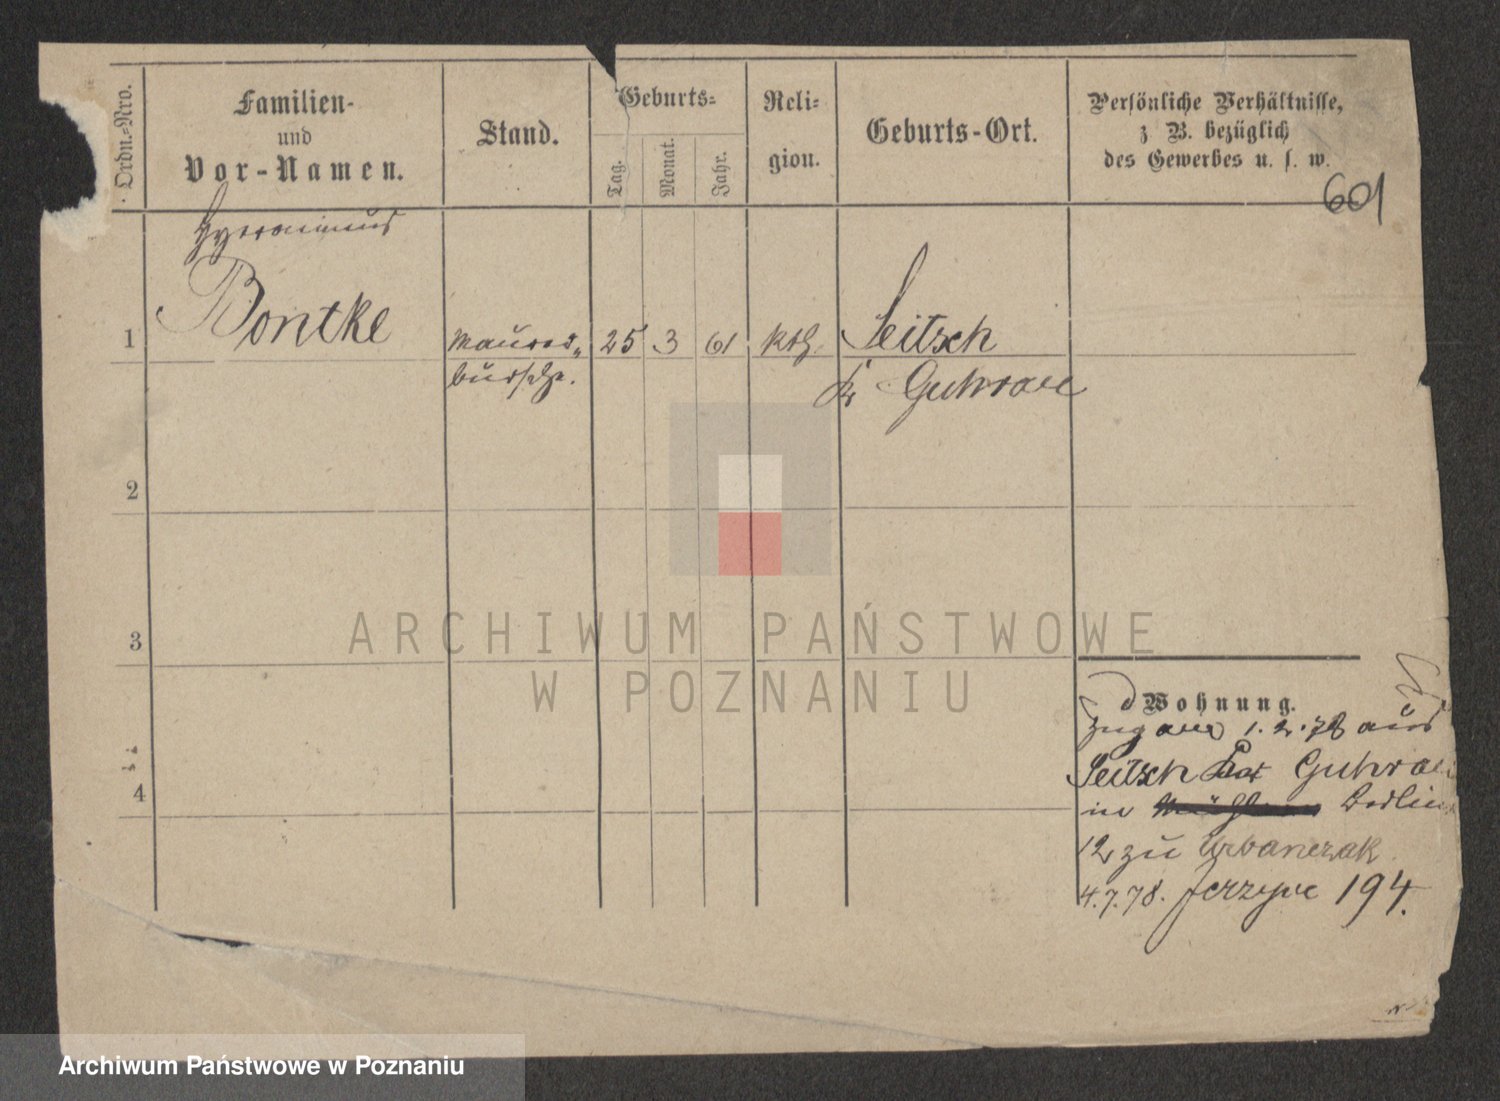 Ordn.-Nro.
Familien-
und
Vor-Namen.
Stand.
Geburts-
Tag.
Monat.
Jahr.
Reli-
gion.
Geburts-Ort.
Persönliche Verhältnisse,
z B. bezüglich
des Gewerbes u. s. w.
601
Hyeronimus
1 Bontke Maurer- 25 3 61 kth. Seitsch
bursche. Kr Guhrau
2
3
4
Wohnung.
Zugang 1.2.78 aus
Seitsch Kr Guhrau
in Berlin
12 zu Urbanczak
4.7.78. Jerzyce 194.
ARCHIWUM PAŃSTWOWE
W POZNANIU
Archiwum Państwowe w Poznaniu